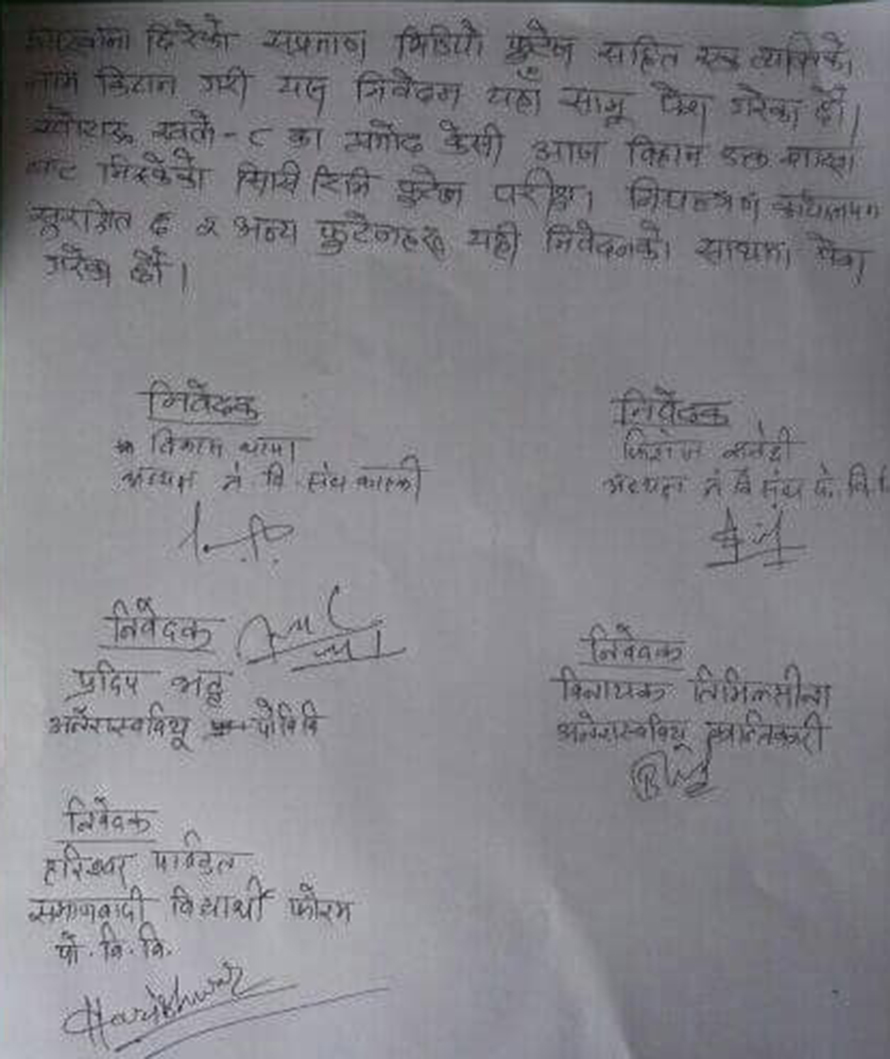 दिएको सप्रमाण भिडियो फुटेज सहित एक व्यक्तिको
नाम किटान गरी यस निवेदन यहाँ सामु पेश गरेका छौं।
का प्रमोद केसी आज विहान उक्त शाखा
बाट निस्केको सिसि टिभि फुटेज परीक्षा नियन्त्रण कार्यालयमा
सुरक्षित छ र अन्य फुटेजहरु यही निवेदनको साथमा पेश
गरेका छौं।
निवेदक
विकास थापा
अध्यक्ष ने. वि. संघ कास्की
निवेदक
अध्यक्ष ने वि संघ पो. वि.
निवेदक
प्रदिप भट्ट
अनेरास्ववियू पोविवि
निवेदक
विनायक तिमिल्सीना
अनेरास्ववियू क्रान्तिकारी
निवेदक
हरिश्वर पौडेल
समाजवादी विद्यार्थी फोरम
पो. वि. वि.
Harishwar